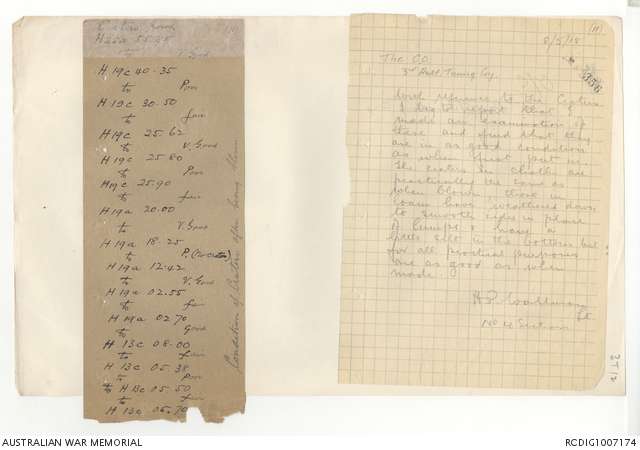 H 19c 40-35
to Poor
H 19c 30.50
to fair
H 19c 25-62
to V. Good
H 19c 25 80
to Poor
H 19c 25-90
to fair
H 19a 20.00
to V. Good
H 19a 18-25
to P.
H 19a 12-42
to V. Good
H 19a 02.55
to fair
H 19a 02 70
to Good
H 13c 08-00
to fair
H 13c 05-38
to Poor
to H 13c 05-50
to fair
H 13c 05.70
Condition of Craters after being blown
(11)
8/5/18
The O.C.
3rd Aust. Tunng Coy.
With reference to the Craters
I beg to report that I
made an examination of
these and find that they
are in as good condition
as when first put in.
The craters in chalk are
practically the same as
when blown, those in
loam have weathered down
to smooth edges in place
of lumps & have a
little silt in the bottom but
for all practical purposes
are as good as when
made.
Lt.
No 4 Section
AUSTRALIAN WAR MEMORIAL
RCDIG1007174